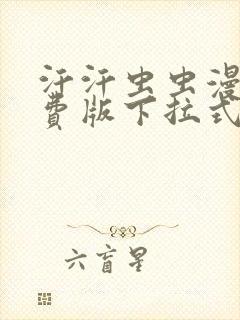 汗汗虫虫漫
费版下拉式
六盲星